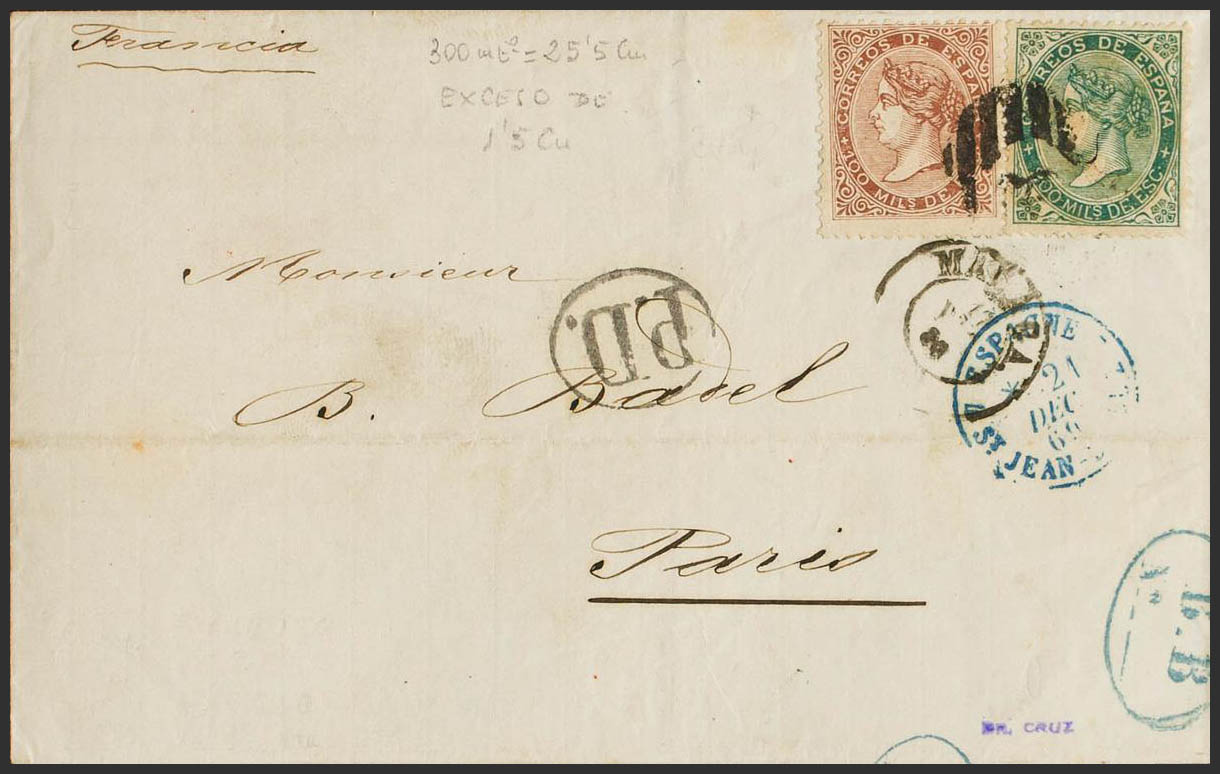 Francia
300 mls = 25'5 Cu
EXCESO DE
1'5 Cu
CORREOS DE ESPAÑA
100 MILS DE
CORREOS DE ESPAÑA
MILS DE ESC.
Monsieur
P.D.
B. Basel
ESPAGNE
ST JEAN
21
DEC
69
Paris
B.B
No
DR. CRUZ